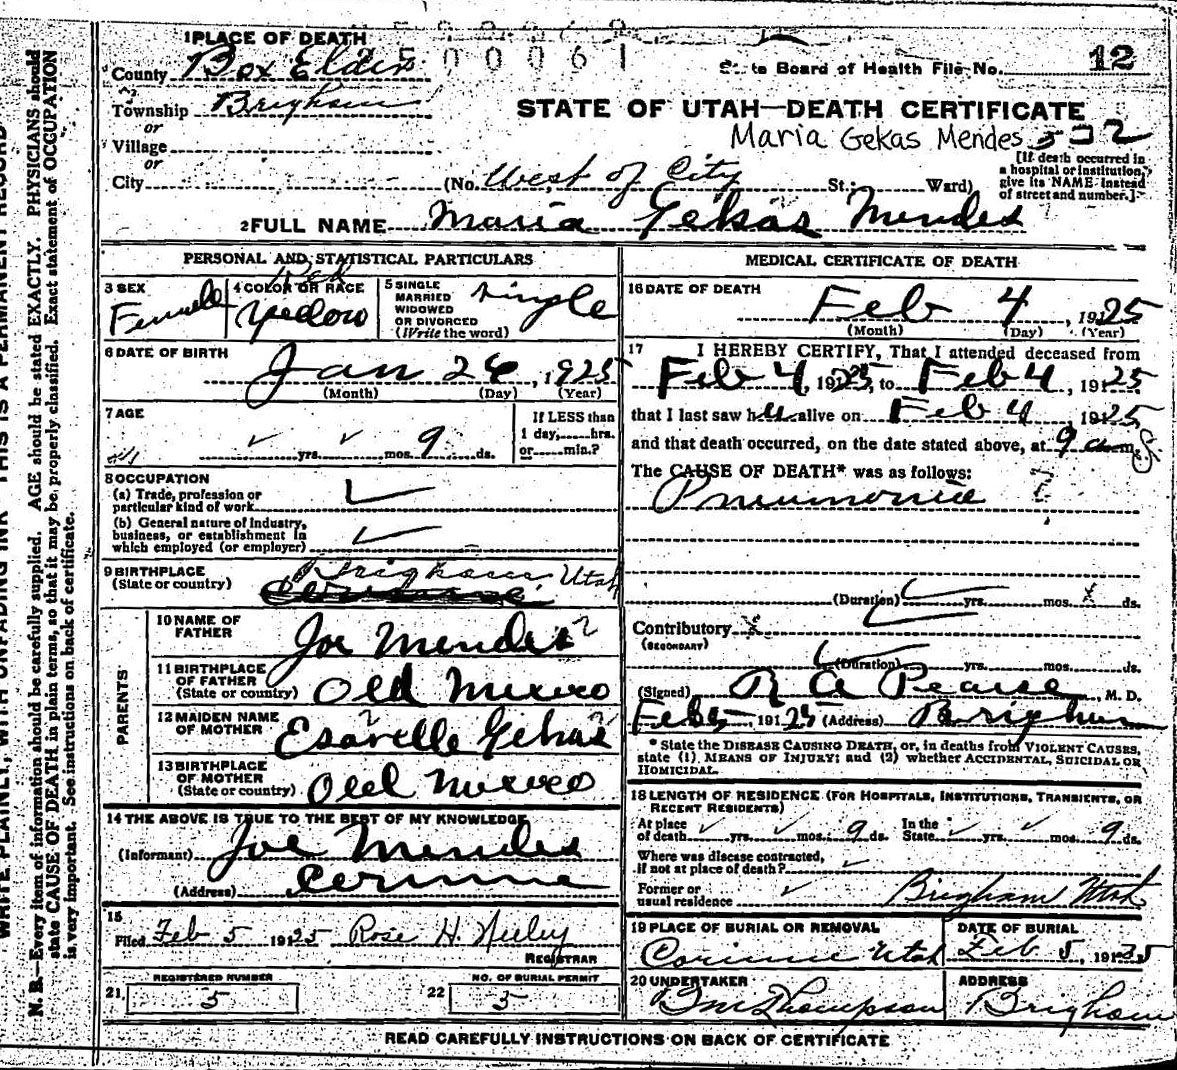 1 PLACE OF DEATH
County Box Elder
2500061
State Board of Health File No. 12
Township Brigham
STATE OF UTAH—DEATH CERTIFICATE
or
Maria Gekas Mendes
Village
or
City (No. West of City St.; Ward)
[If death occurred in a hospital or institution, give its NAME instead of street and number.]
2 FULL NAME Maria Gekas Mendes
PERSONAL AND STATISTICAL PARTICULARS
3 SEX Female
4 COLOR OR RACE Red Yellow
5 SINGLE MARRIED WIDOWED OR DIVORCED (Write the word) Single
6 DATE OF BIRTH
Jan 26, 1925
(Month) (Day) (Year)
7 AGE
yrs. mos. 9 ds.
If LESS than 1 day, hrs. or min.?
8 OCCUPATION
(a) Trade, profession or particular kind of work
(b) General nature of Industry, business, or establishment in which employed (or employer)
9 BIRTHPLACE (State or country) Brigham Utah
PARENTS
10 NAME OF FATHER Joe Mendes ?
11 BIRTHPLACE OF FATHER (State or country) Old Mexico
12 MAIDEN NAME OF MOTHER Esavelle Gekas
13 BIRTHPLACE OF MOTHER (State or country) Old Mexico
14 THE ABOVE IS TRUE TO THE BEST OF MY KNOWLEDGE
(Informant) Joe Mendes
(Address) Corinne
15
Filed Feb 5 19125 Rose H. Neeley
REGISTRAR
REGISTERED NUMBER
21. 5
NO. OF BURIAL PERMIT
22 3
MEDICAL CERTIFICATE OF DEATH
16 DATE OF DEATH
Feb 4, 19125
(Month) (Day) (Year)
17 I HEREBY CERTIFY, That I attended deceased from
Feb 4, 19125, to Feb 4, 19125
that I last saw her alive on Feb 4 19125
and that death occurred, on the date stated above, at 9 am
The CAUSE OF DEATH* was as follows:
Pneumonia ?
(Duration) yrs. mos. ds.
Contributory (SECONDARY)
(Duration) yrs. mos. ds.
(Signed) R A Pearse, M. D.
Feb 5, 19125 (Address) Brigham
* State the DISEASE CAUSING DEATH, or, in deaths from VIOLENT CAUSES,
state (1) MEANS OF INJURY; and (2) whether ACCIDENTAL, SUICIDAL OR
HOMICIDAL.
18 LENGTH OF RESIDENCE (FOR HOSPITALS, INSTITUTIONS, TRANSIENTS, OR
RECENT RESIDENTS)
At place of death yrs. mos. 9 ds. In the State yrs. mos. 9 ds.
Where was disease contracted, if not at place of death?
Former or usual residence Brigham Utah
19 PLACE OF BURIAL OR REMOVAL Corinne Utah
DATE OF BURIAL Feb 5, 191
20 UNDERTAKER Thompson
ADDRESS Brigham
READ CAREFULLY INSTRUCTIONS ON BACK OF CERTIFICATE
WRITE PLAINLY, WITH UNFADING INK—THIS IS A PERMANENT RECORD
N. B.—Every item of information should be carefully supplied. AGE should be stated EXACTLY. PHYSICIANS should
state CAUSE OF DEATH in plain terms, so that it may be properly classified. Exact statement of OCCUPATION
is very important. See instructions on back of certificate.